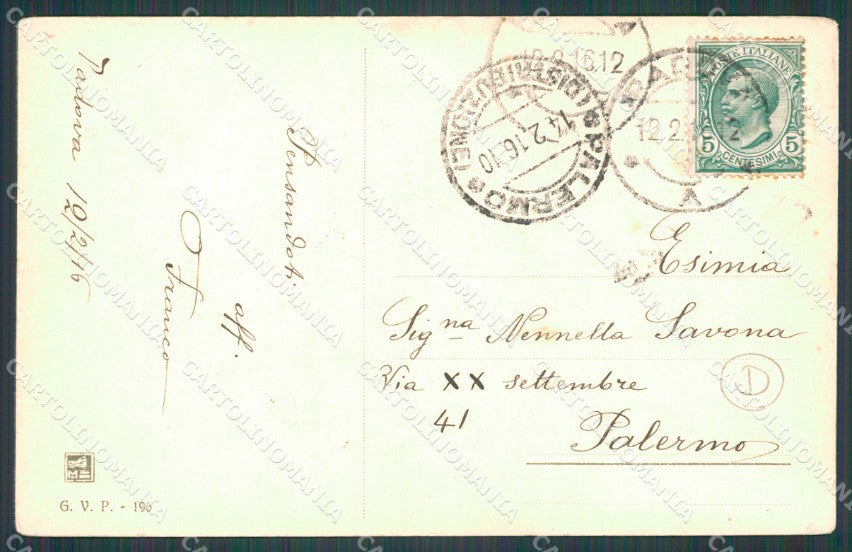 Padova 12/2/16
Pensandoti
aff.
Franco
G. V. P. - 196
PADOVA
12.2.16.12
PALERMO
(DISTRIBUZIONE)
14.2.16.10
POSTE ITALIANE
5 5
CENTESIMI
Esimia
Sig na Nennella Savona
Via XX settembre
41
Palermo
D
CARTOLINOMANIA